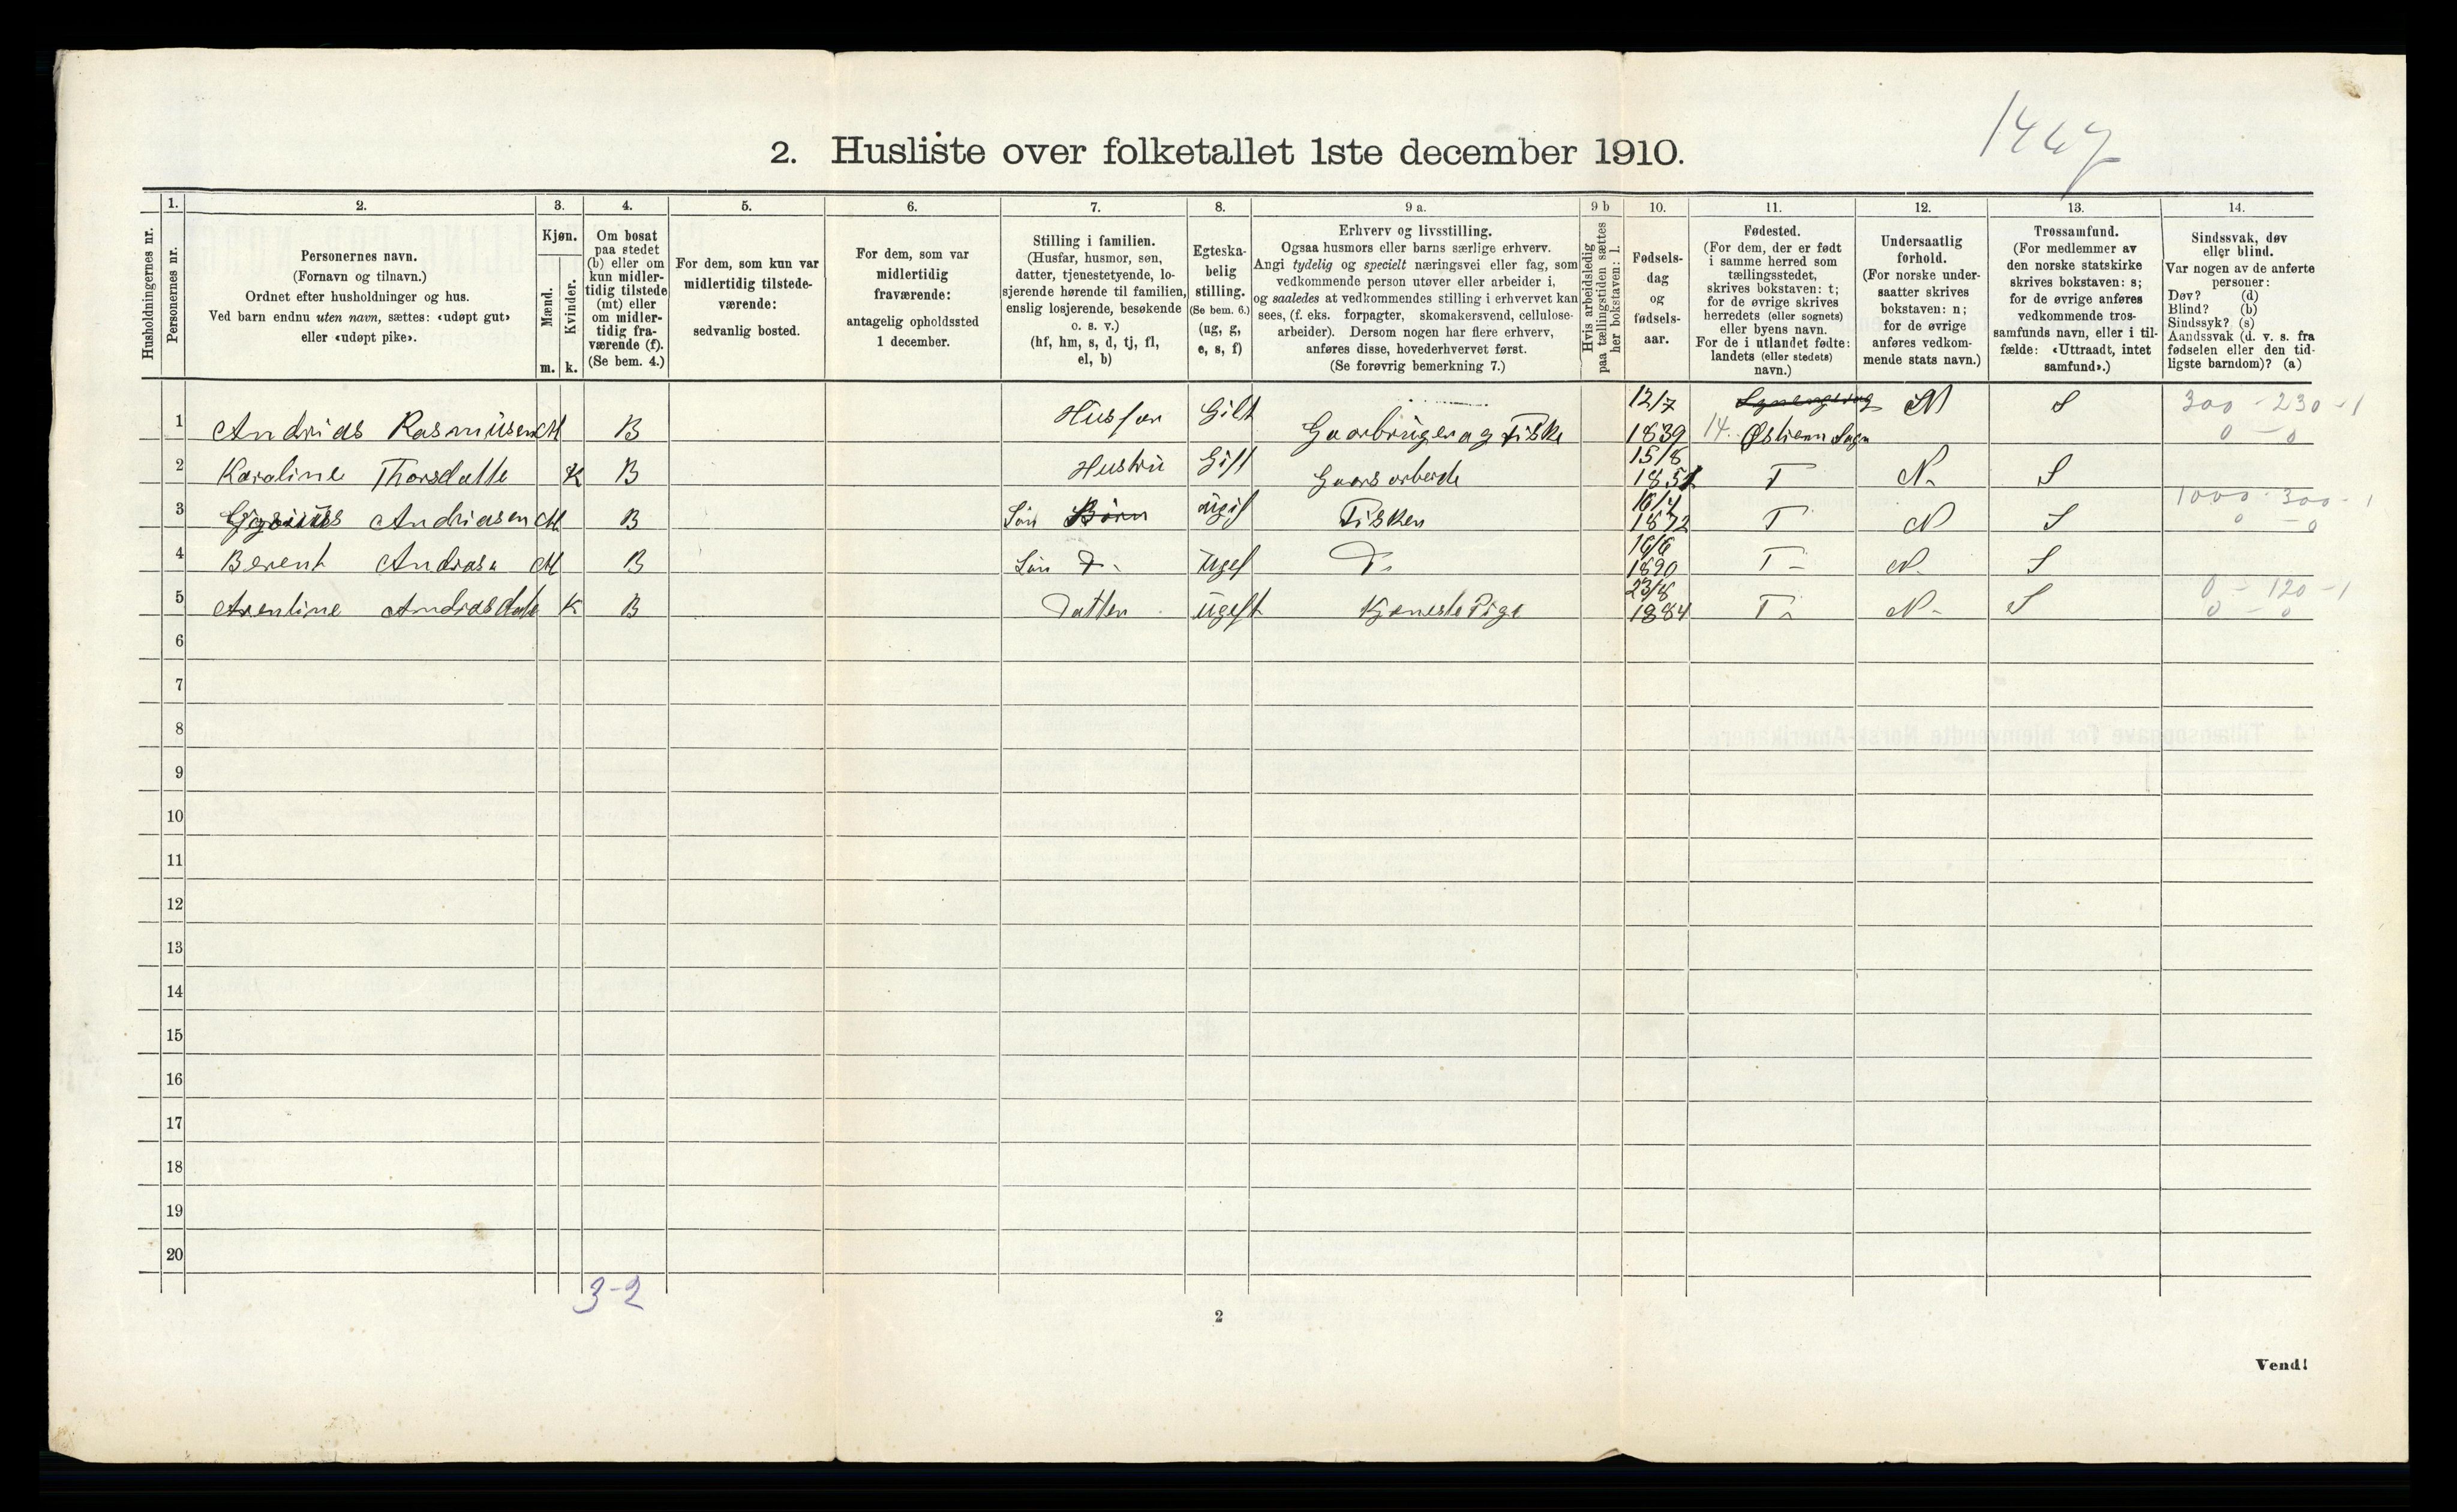 1447
2. Husliste over folketallet 1ste december 1910.
Husholdningernes nr.
1.
Personernes nr.
2.
Personernes navn.
(Fornavn og tilnavn.)
Ordnet efter husholdninger og hus.
Ved barn endnu uten navn, sættes: «udøpt gut»
eller «udøpt pike».
3.
Kjøn.
Mænd.
Kvinder.
m. k.
4.
Om bosat
paa stedet
(b) eller om
kun midler-
tidig tilstede
(mt) eller
om midler-
tidig fra-
værende (f).
(Se bem. 4.)
5.
For dem, som kun var
midlertidig tilstede-
værende:
sedvanlig bosted.
6.
For dem, som var
midlertidig
fraværende:
antagelig opholdssted
1 december.
7.
Stilling i familien.
(Husfar, husmor, søn,
datter, tjenestetyende, lo-
sjerende hørende til familien,
enslig losjerende, besøkende
o. s. v.)
(hf, hm, s, d, tj, fl,
el, b)
8.
Egteska-
belig
stilling.
(Se bem. 6.)
(ug, g,
e, s, f)
9 a.
Erhverv og livsstilling.
Ogsaa husmors eller barns særlige erhverv.
Angi tydelig og specielt næringsvei eller fag, som
vedkommende person utøver eller arbeider i,
og saaledes at vedkommendes stilling i erhvervet kan
sees, (f. eks. forpagter, skomakersvend, cellulose-
arbeider). Dersom nogen har flere erhverv,
anføres disse, hovederhvervet først.
(Se forøvrig bemerkning 7.)
9 b
Hvis arbeidsledig
paa tællingstiden sættes
her bokstaven: l.
10.
Fødsels-
dag
og
fødsels-
aar.
11.
Fødested.
(For dem, der er født
i samme herred som
tællingsstedet,
skrives bokstaven: t;
for de øvrige skrives
herredets (eller sognets)
eller byens navn.
For de i utlandet fødte:
landets (eller stedets)
navn.)
12.
Undersaatlig
forhold.
(For norske under-
saatter skrives
bokstaven: n;
for de øvrige
anføres vedkom-
mende stats navn.)
13.
Trossamfund.
(For medlemmer av
den norske statskirke
skrives bokstaven: s;
for de øvrige anføres
vedkommende tros-
samfunds navn, eller i til-
fælde: «Uttraadt, intet
samfund».)
14.
Sindssvak, døv
eller blind.
Var nogen av de anførte
personer:
Døv? (d)
Blind? (b)
Sindssyk? (s)
Aandssvak (d. v. s. fra
fødselen eller den tid-
ligste barndom)? (a)
1 Andrias Rasmusen M B Husfar Gift Gaarbruger og Fiske 12/7 1839 14. Sogn N S 300 - 230 - 1
0 - 0
2 Karoline Thorsdatte K B Hustru Gift Gaarsarbeide 15/8 1851 T N. S
3 Andriasen M B Sön Börn Ugif Fisker 16/4 1872 T N S 1000 - 300 - 1
0 - 0
4 Berent Andrasn M B Sön D. Ugef D. 16/6 1890 T - N. S
5 Arentine Andriasdate K B Datter Ugeft Kjeneste Pige 23/8 1884 T. N - S 0 - 120 - 1
0 - 0
6
7
8
9
10
11
12
13
14
15
16
17
18
19
20
3-2
2
Vend!